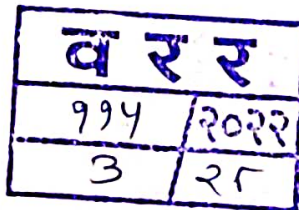 व र र
११५/२०२२
3/२८